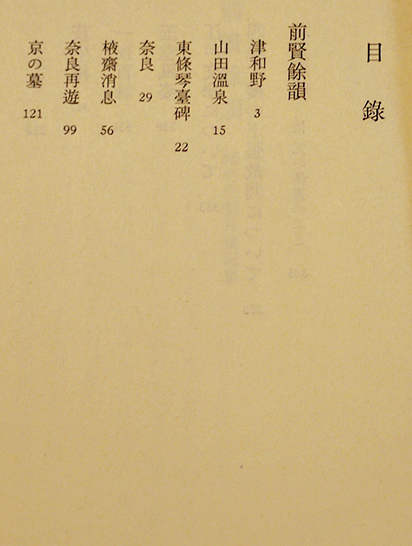 目錄
前賢餘韻
津和野 3
山田溫泉 15
東條琴臺碑 22
奈良 29
棭齋消息 56
奈良再遊 99
京の墓 121